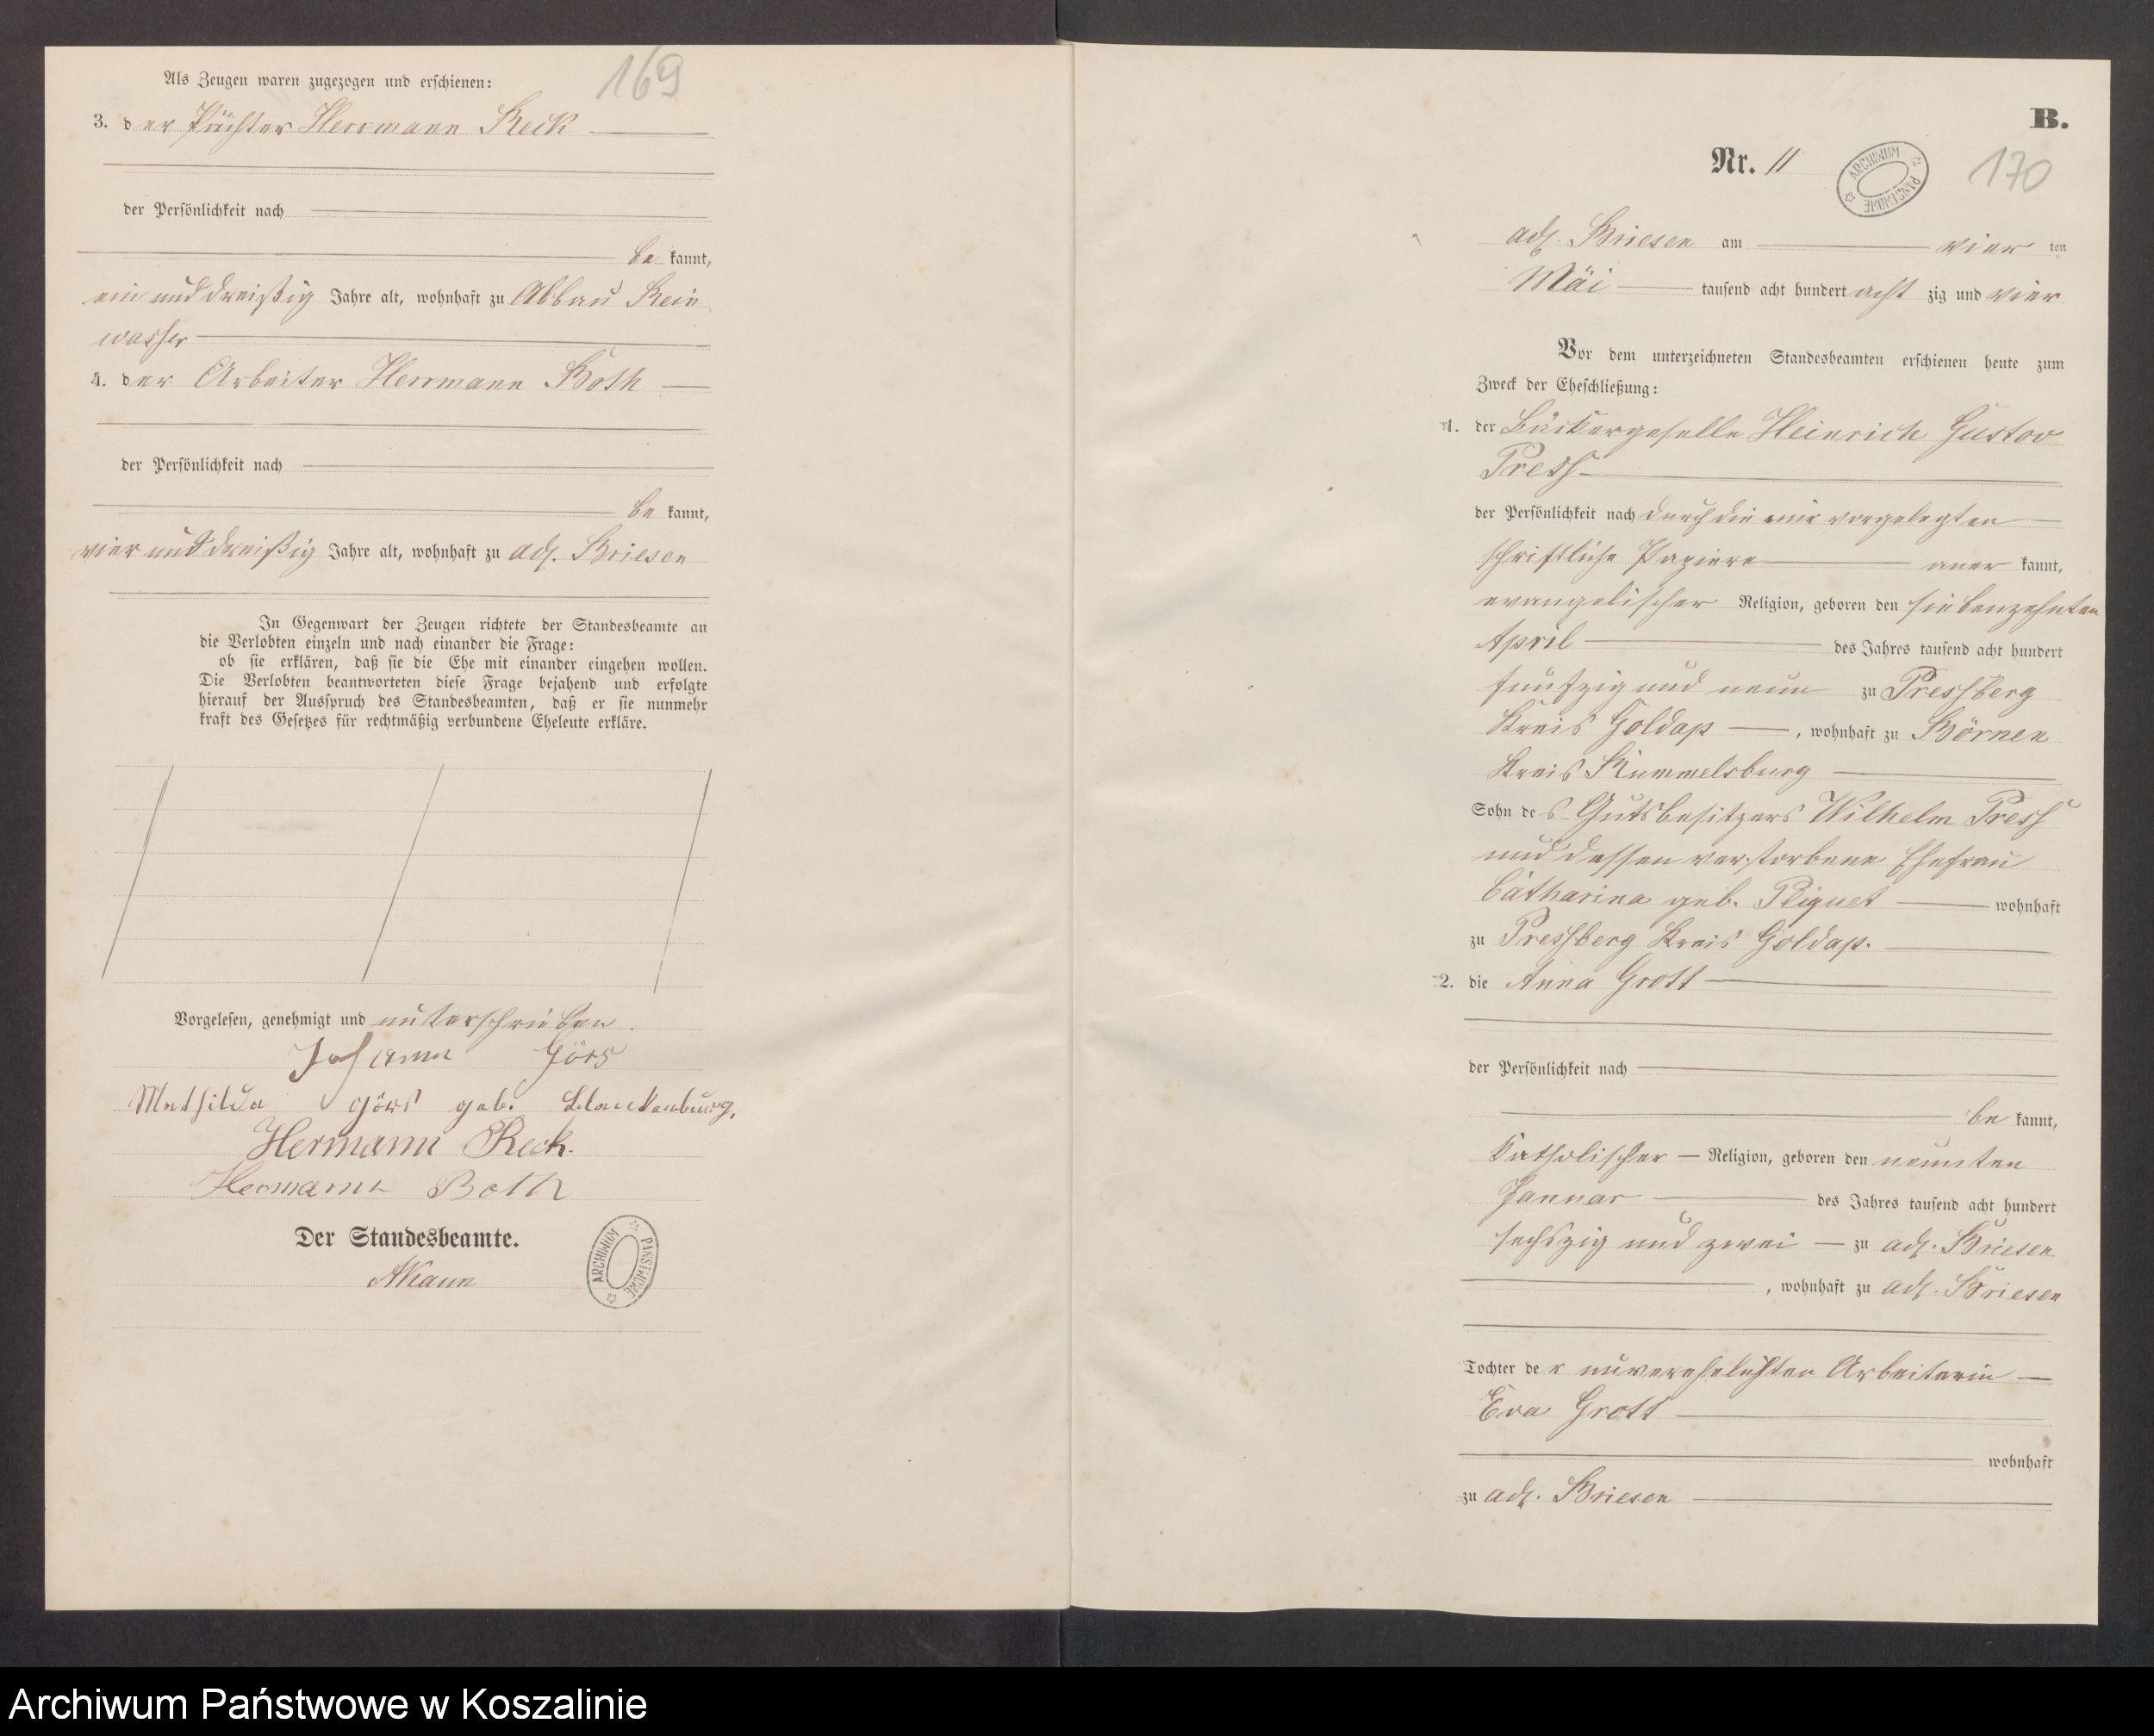 169
Als Zeugen waren zugezogen und erschienen:
3. der Pächter Herrmann Reck
der Persönlichkeit nach
be kannt,
ein und dreißig Jahre alt, wohnhaft zu Abbau Rein
wasser
4. der Arbeiter Herrmann Both
der Persönlichkeit nach
be kannt,
vier und dreißig Jahre alt, wohnhaft zu adl. Briesen
In Gegenwart der Zeugen richtete der Standesbeamte an
die Verlobten einzeln und nach einander die Frage:
ob sie erklären, daß sie die Ehe mit einander eingehen wollen.
Die Verlobten beantworteten diese Frage bejahend und erfolgte
hierauf der Ausspruch des Standesbeamten, daß er sie nunmehr
kraft des Gesetzes für rechtmäßig verbundene Eheleute erkläre.
Vorgelesen, genehmigt und unterschrieben.
Johann Görs
Mathilda Görs geb. Blankenburg.
Hermann Reck.
Hermann Both
Der Standesbeamte.
ARCHIWUM PAŃSTWOWE
B.
Nr. 11
ARCHIWUM PAŃSTWOWE
170
adl. Briesen am vier ten
Mai tausend acht hundert acht zig und vier
Vor dem unterzeichneten Standesbeamten erschienen heute zum
Zweck der Eheschließung:
1. der Bäckergeselle Heinrich Gustav
Press
der Persönlichkeit nach durch die mir vorgelegten
schriftliche Papiere aner kannt,
evangelischer Religion, geboren den siebenzehnten
April des Jahres tausend acht hundert
fünfzig und neun zu Pressberg
Kreis Goldap, wohnhaft zu Börnen
Kreis Rummelsburg
Sohn des Gutsbesitzers Wilhelm Press
und dessen verstorbene Ehefrau
Catharina geb. wohnhaft
zu Pressberg Kreis Goldap.
2. die Anna Grott
der Persönlichkeit nach
be kannt,
katholischer Religion, geboren den neunten
Januar des Jahres tausend acht hundert
sechszig und zwei zu adl. Briesen
, wohnhaft zu adl. Briesen
Tochter der unverehelichten Arbeiterin
Eva Grott
wohnhaft
zu adl. Briesen
Archiwum Państwowe w Koszalinie